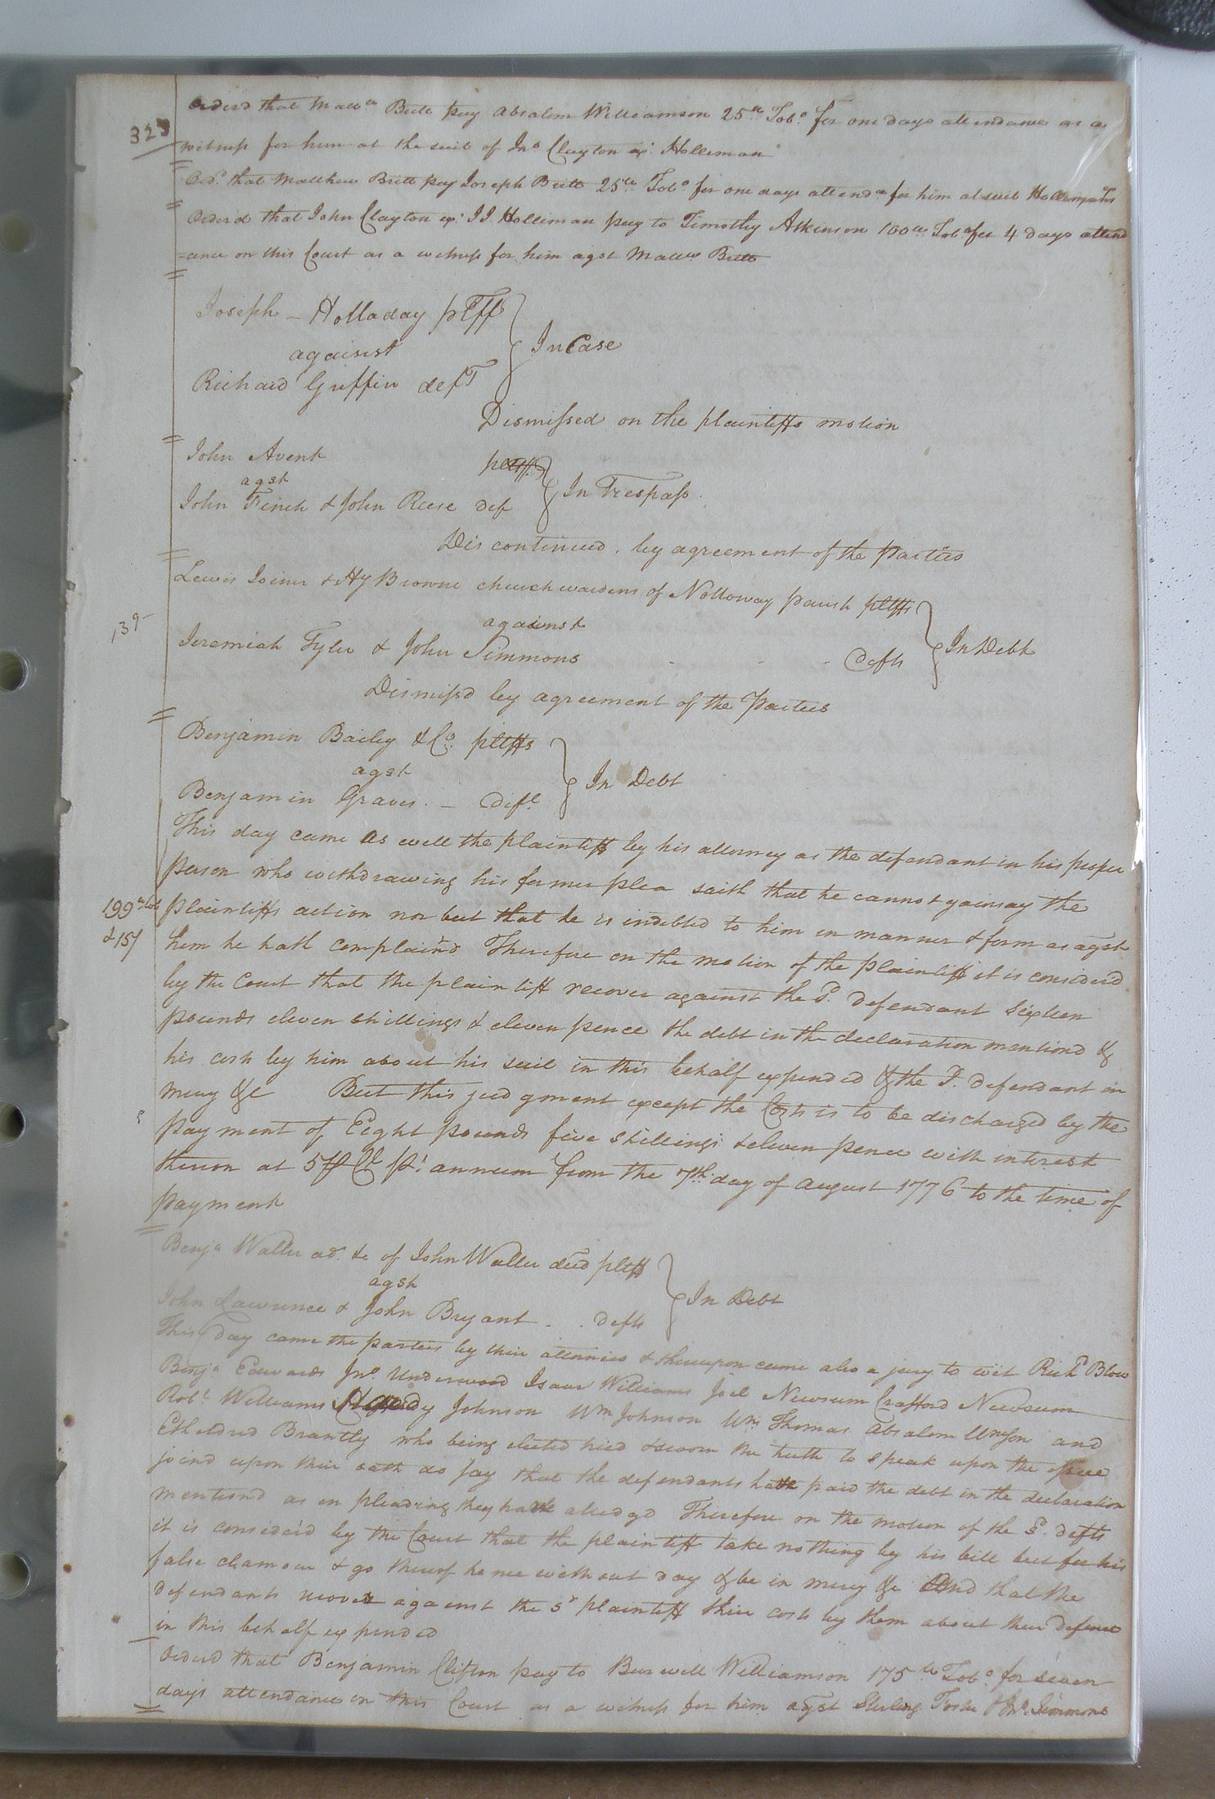 323
Orderd that Matt.w Britt pay Absalom Williamson 25.lb Tob.o for one days attendance as a
witness for him at the suit of Jn.o Clayton ex.r Holliman
Ord.d that Matthew Britt pay Joseph Britt 25.lb Tob.o for one days attend.e for him at suit
Orderd that John Clayton ex.r J J Holliman pay to Timothy Atkinson 100.lb Tob.o for 4 days attend
=ance on this Court as a witness for him agst Mattw Britt
Joseph Holladay pltff
against
Richard Griffin deft
In Case
Dismissed on the plaintiffs motion
John Avent pltff
agst
John Finch & John Reese def
In Trespass.
Discontinued by agreement of the Parties
Lewis Joiner & Hy Browne churchwardens of Nottoway parish pltffs
against
139
Jeremiah Tyler & John Simmons defts
In Debt
Dismissd by agreement of the Parties
Benjamin Bailey & Co. pltffs
agst
Benjamin Graves. deft
In Debt
This day came as well the plaintiff by his attorney as the defendant in his proper
person who withdrawing his former plea saith that he cannot gainsay the
199 lb tob
& 15/
plaintiffs action nor but that he is indebted to him in manner & form as agst
him he hath complaind Therefore on the motion of the plaintiff it is considerd
by the Court that the plaintiff recover against the sd. defendant Sixteen
pounds eleven shillings & eleven pence the debt in the declaration mentiond &
his costs by him about his suit in this behalf expended & the sd. defendant in
mercy &c But this judgment except the Costs is to be discharged by the
payment of Eight pounds five shillings & eleven pence with interest
thereon at 5 p Ct pr. annum from the 7th day of August 1776 to the time of
payment
Benja Waller ad. &c of John Waller decd pltff
agst
John Lawrence & John Bryant defts
In Debt
This day came the parties by their attornies & thereupon came also a jury to wit Richd Blow
Benja Edwards Jno Underwood Isaac Williams Joel Newsum Crafford Newsum
Robt. Williams Hardy Johnson Wm Johnson Wm Thomas Absalom Wmson and
Etheldred Brantly who being elected tried & sworn the truth to speak upon the issue
joind upon their oath do say that the defendants hath paid the debt in the declaration
mentiond as in pleading they hath alledgd Therefore on the motion of the sd. defts
it is considerd by the Court that the plaintiff take nothing by his bill but for his
false clamour & go thereof hence without day & be in mercy &c And that the
defendants recover against the sd plaintiff their costs by them about their defence
in this behalf expended
Orderd that Benjamin Clifton pay to Burwell Williamson 175 lb Tob.o for seven
days attendance on this Court as a witness for him agst Sterling & Jno. Simmons